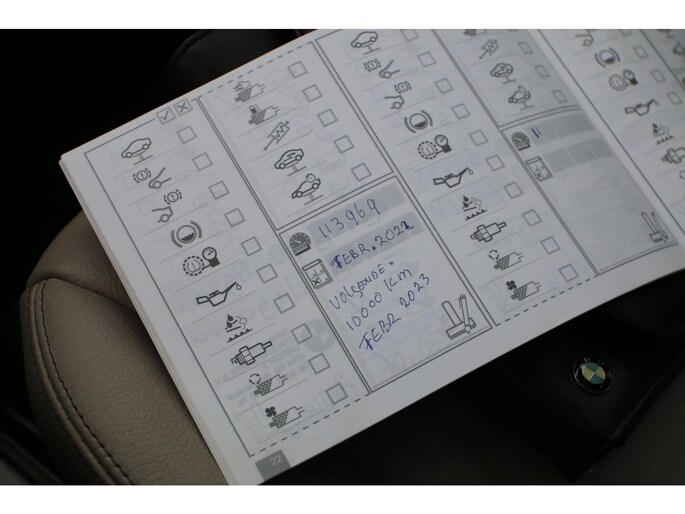 113969
FEBR. 2022
VOLGENDE:
10000 KM
FEBR 2023
22